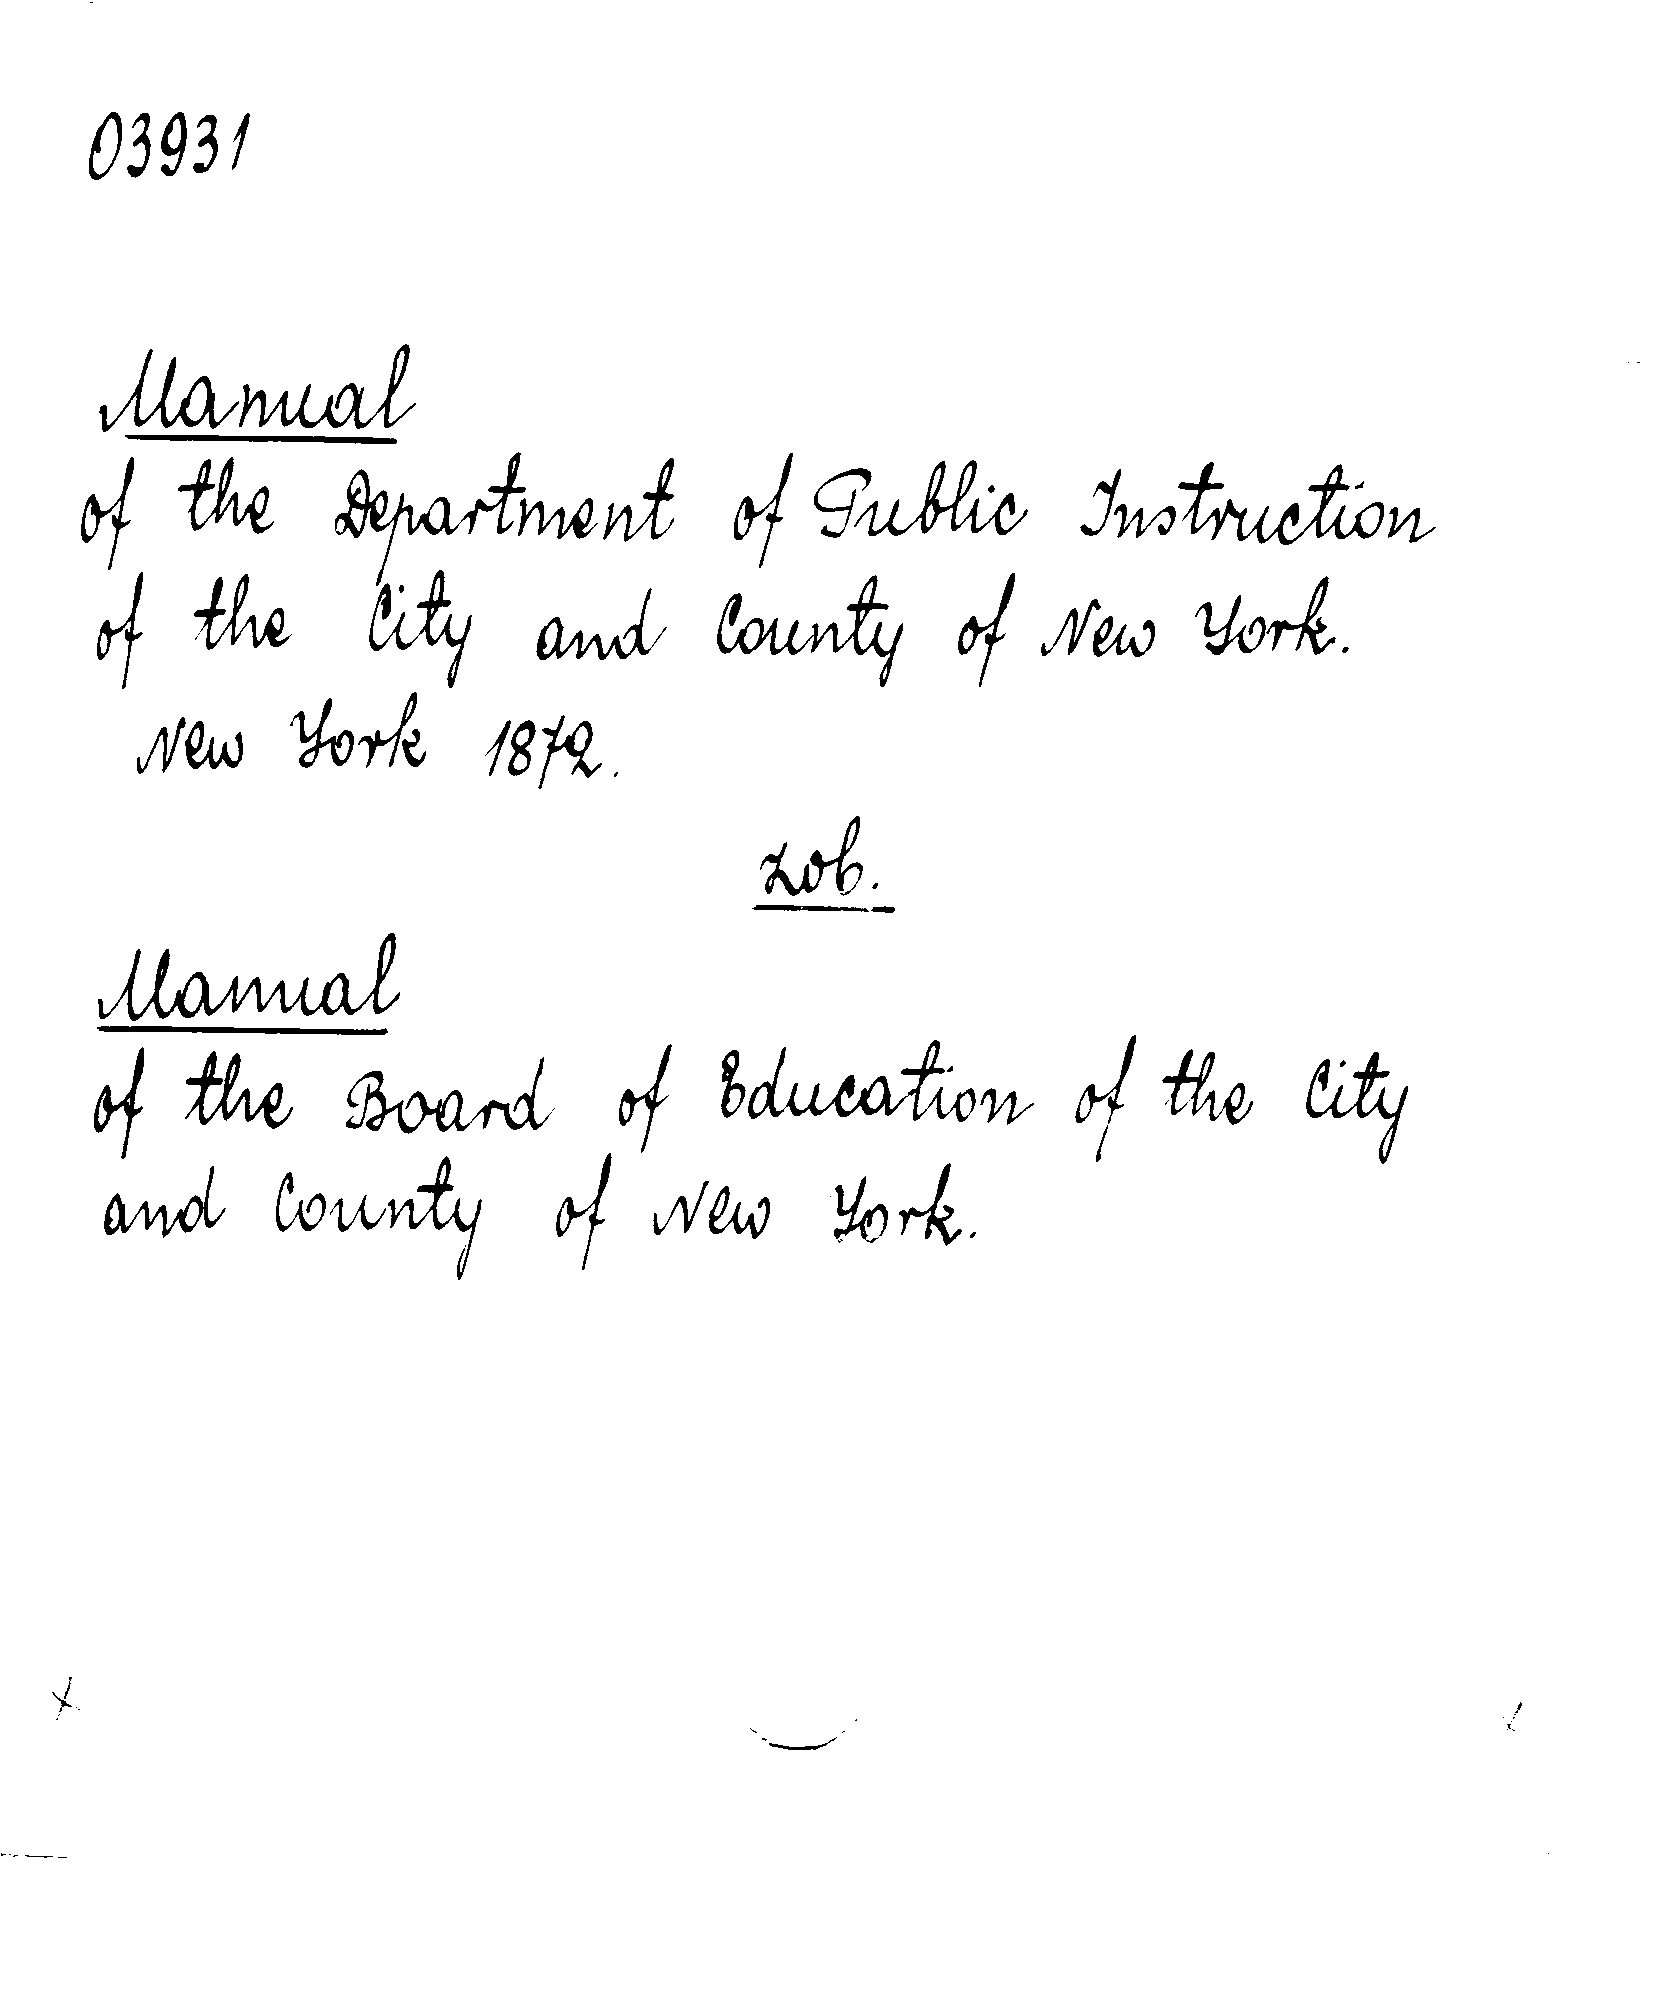 03931
Manual
of the Department of Public Instruction
of the City and County of New York.
New York 1872.
zob.
Manual
of the Board of Education of the City
and County of New York.